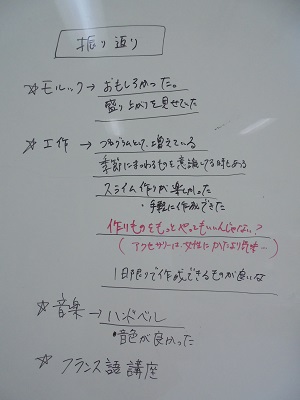 振り返り
☆モルック→おもしろかった。
盛り上がりを見せていた
☆工作→プログラムとして増えている
季節にまつわるものを意識してる時もある
スライム作りが楽しかった
・手軽に作成できた
作りものをもっとやってもいいんじゃない?
(アクセサリーは女性にかたより気味…)
1日限りで作成できるものが良いな
☆音楽→ハンドベル
・音色が良かった
☆フランス語講座